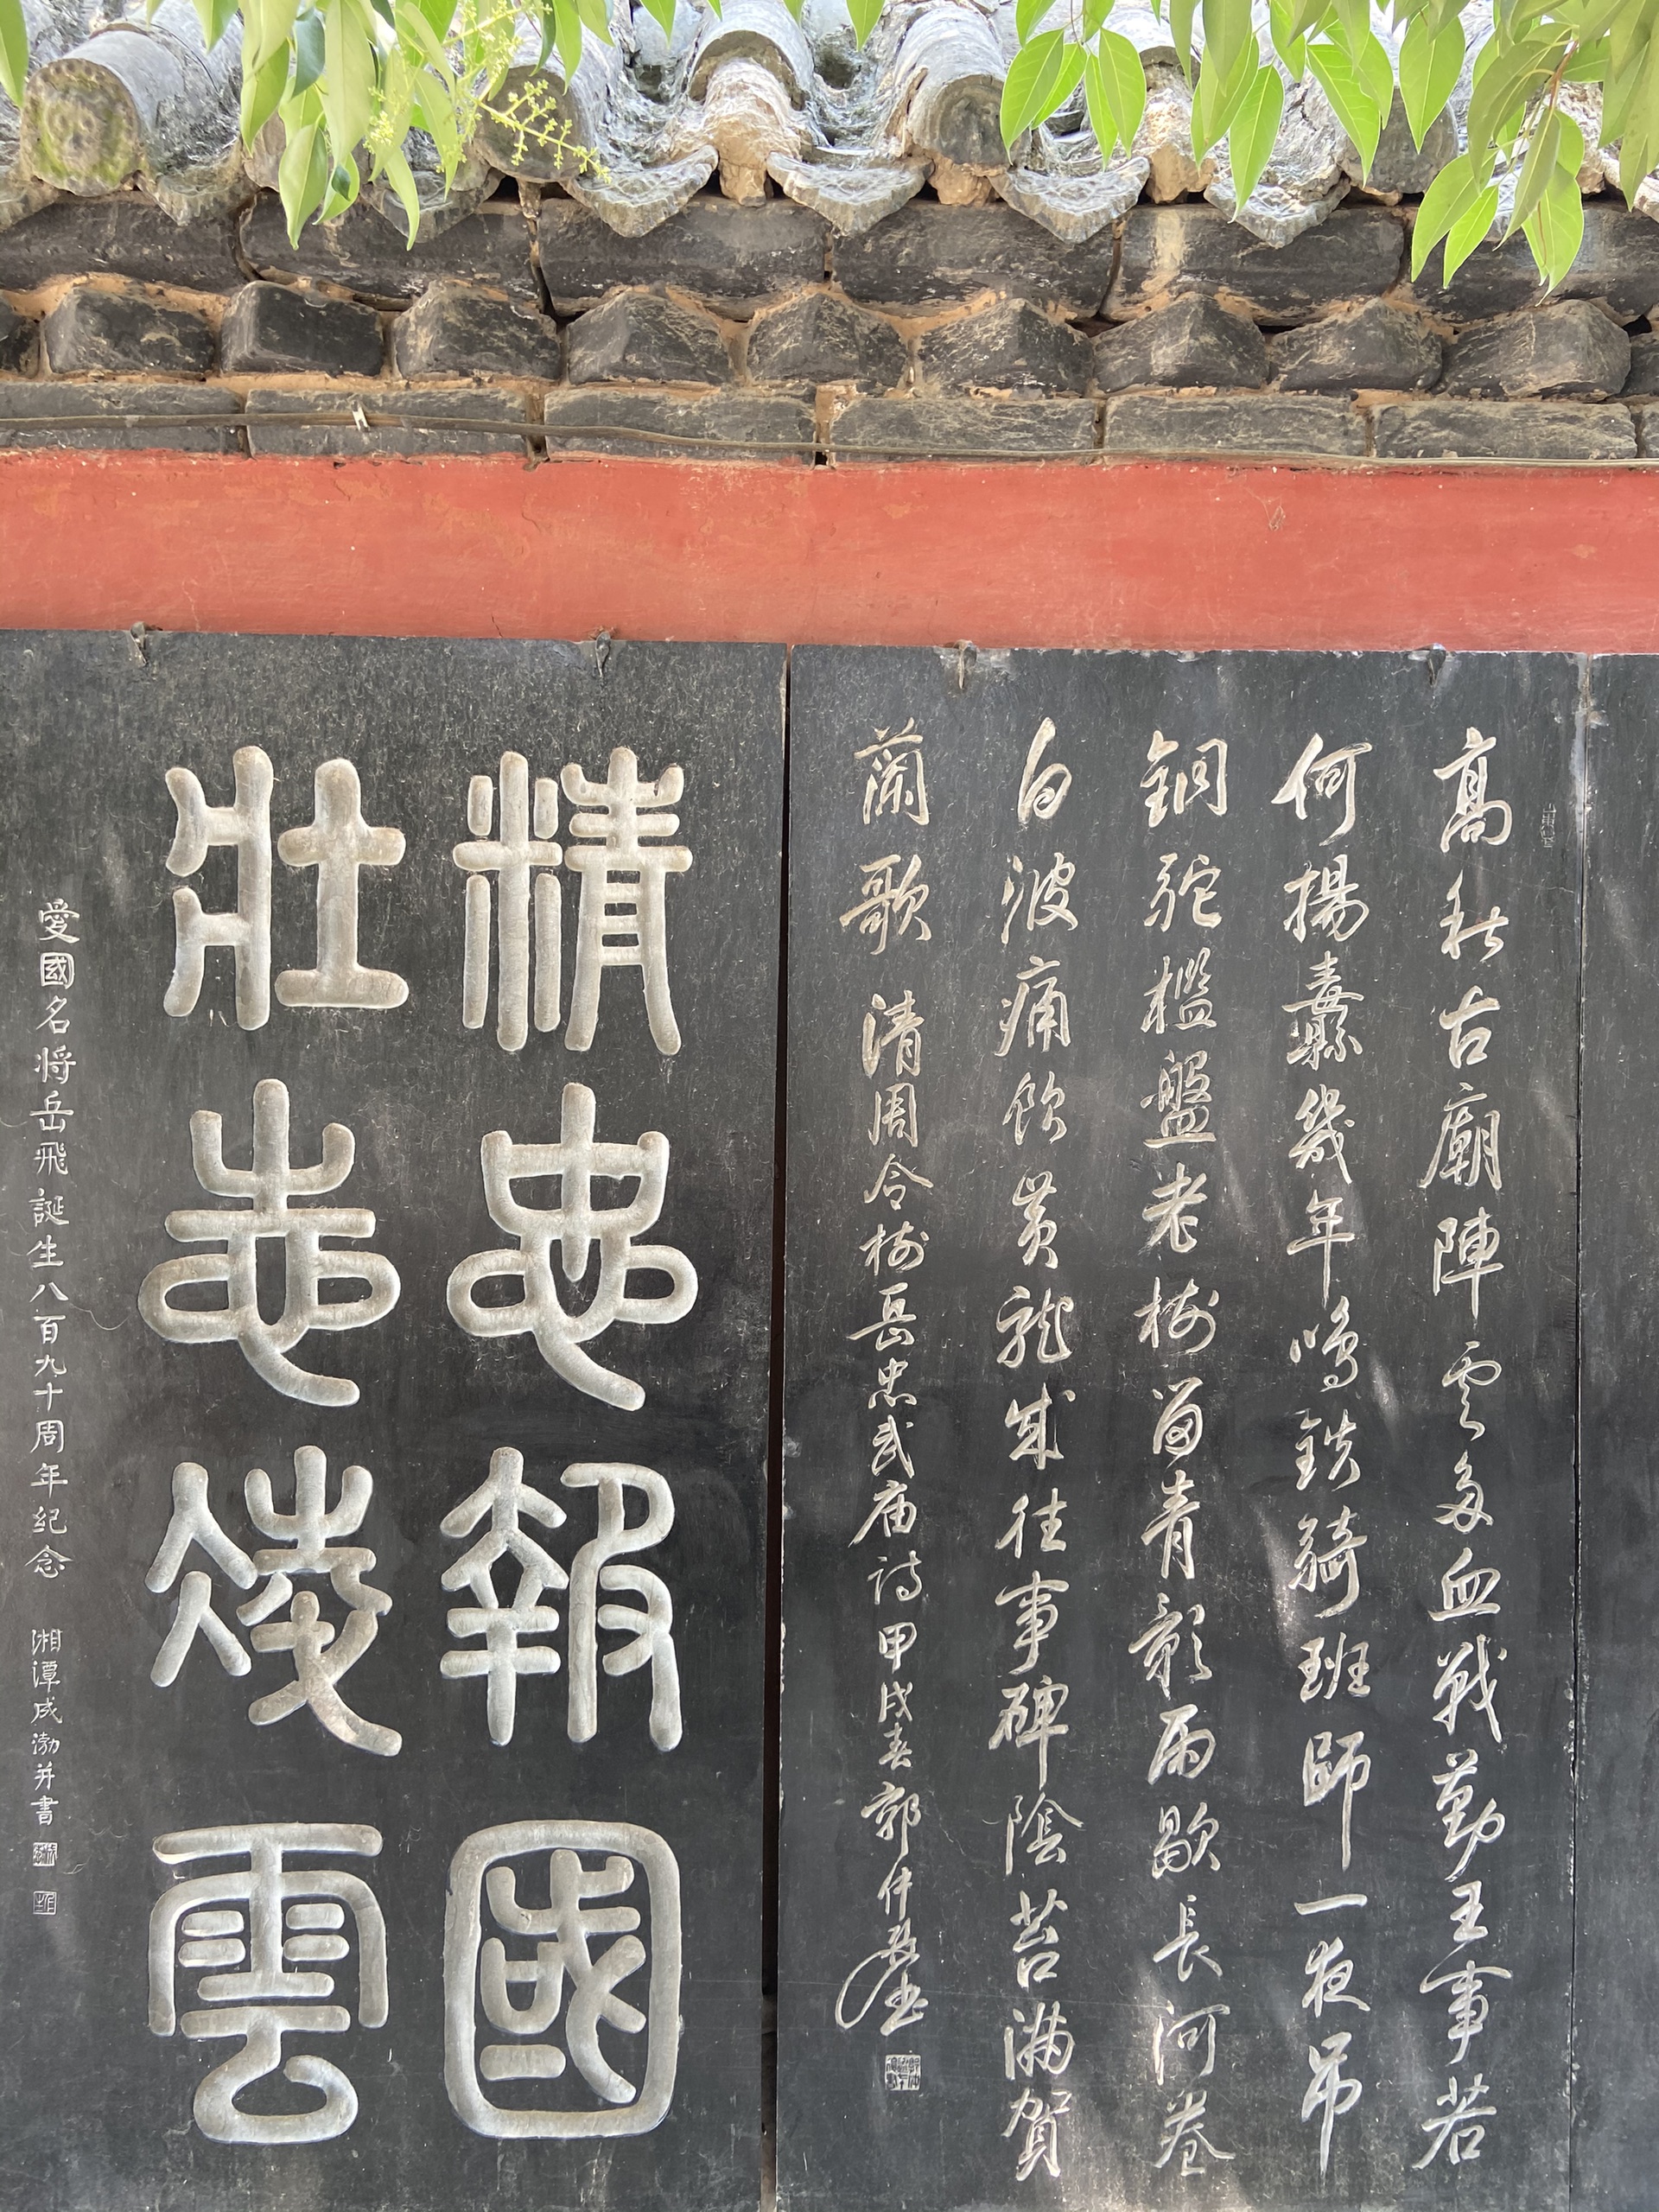 高秋古廟陣雲多血戰勤王事若
何揚纛幾年鳴鉄騎班師一夜吊
銅駝檻盤老樹留青影雨歇長河卷
白波痛飲黃龍成往事碑陰苔滿賀
蘭歌 清周令樹岳忠武庙诗甲戌春郭仲
精忠報國
壯志凌雲
愛國名将岳飛誕生八百九十周年紀念 湘潭成渤并書